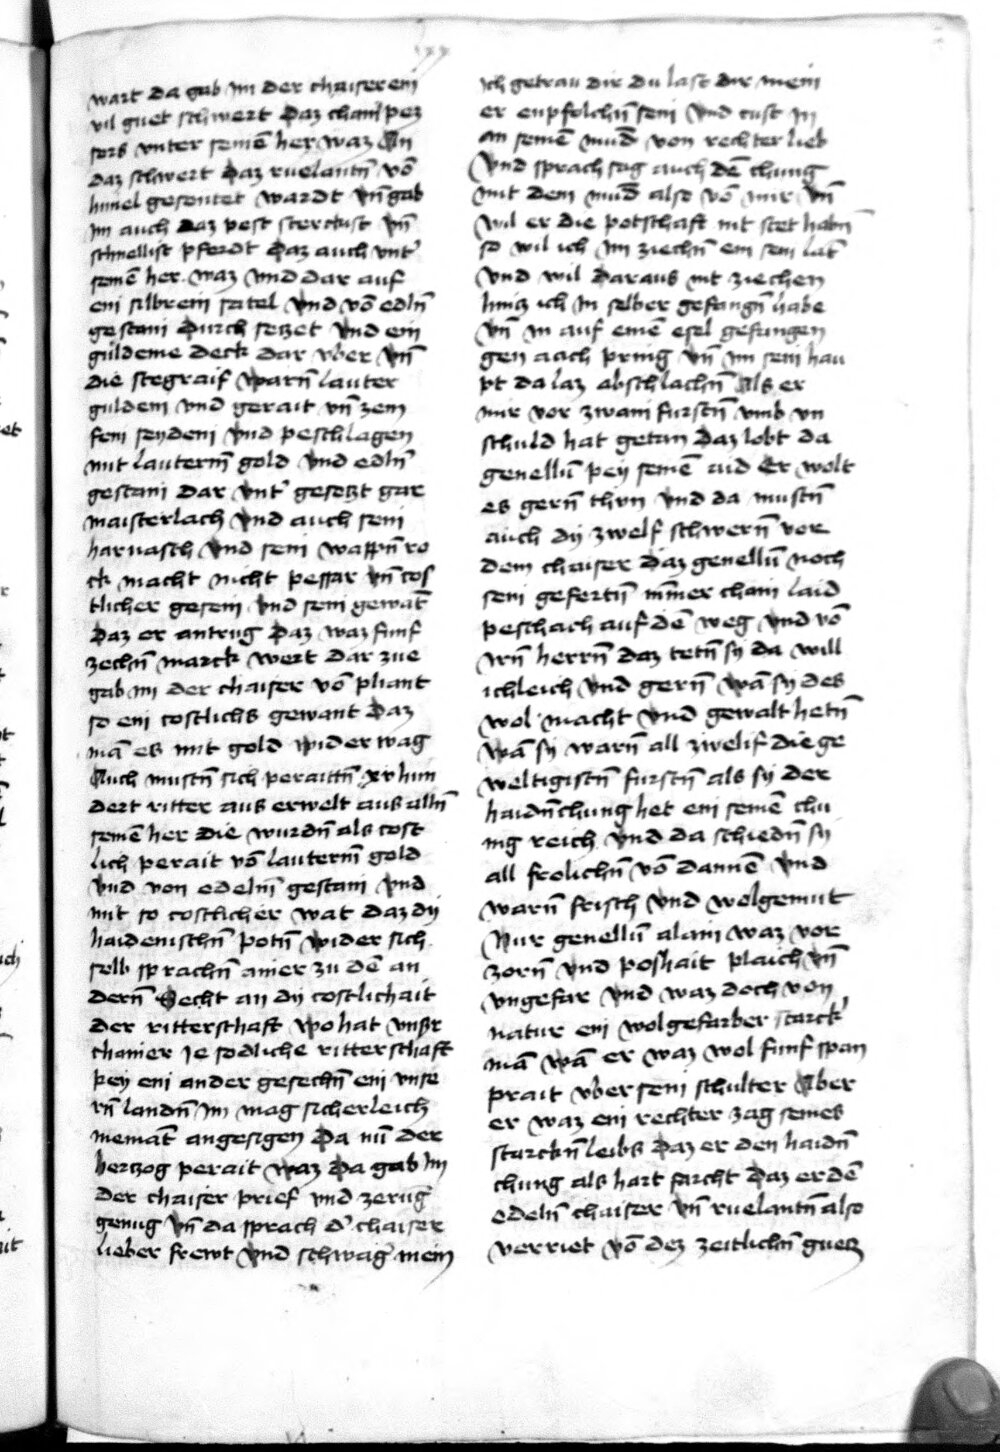 wart da gab im der chaiser ein
vil guet schwert daz chain pez
sers vnter seinē her waz An
daz schwert daz ruelantn̄ vō
himel gesentet wardt vn̄ gab
im auch daz pest sterckist vn̄
schnellist pferdt daz auch vnt'
seinē her waz vnd dar auf
ein silbrein satel vnd vō edln̄
gestain durch setzet vnd ein
guldeine deck dar vber vn̄
die stegraif warn̄ lauter
guldein vnd gerait vn̄ zem
fein seydein vnd peschlagen
mit lauterm̄ gold vnd edln̄
gestain dar vnt' gesetzt gar
maisterlach vnd auch sein
harnasch vnd sein wappn̄ ro
ck macht nicht pessar vn̄ cos
tlicher gesein vnd sein gewāt
daz er antrug daz waz funf
zechn̄ marck wert dar zue
gab im der chaiser vō pliant
so ein costlichs gewant daz
mā es mit gold wider wag
Auch mustn̄ sich peraittn̄ xv hun
dert ritter aus erwelt aus alln̄
seinē her die wurdn̄ als cost
lich perait vō lauterm̄ gold
vnd von edelm̄ gestain vnd
mit so costlicher wat daz dij
haidenischn̄ potn̄ wider sich
selb sprachn̄ ainer zu dē an
dern̄ Secht an dij costlichait
der ritterschaft wo hat vnser
chainer je sodliche ritterschaft
pey ein ander gesechn̄ ein vnse
rn̄ landn̄ im mag sicherleich
niemāt angesigen Da nū der
hertzog perait waz da gab im
der chaiser prief vnd zeruḡ
genug vn̄ da sprach d' chaiser
lieber frewt vnd schwag' mein
ich getrau dir du last dir mein
er enpfolchn̄ sein vnd cust in
an seinē mūd von rechter lieb
vnd sprach sag auch dē chung
mit dem mūd also vō mir vn̄
wil er die potschaft nit stet habn̄
so wil ich im ziechn̄ ein sein lāt
vnd wil daraus nit ziechen
hintz ich in selber gefangn̄ habe
vn̄ in auf einē esel gefungen
gen aach pring vn̄ im sein hau
pt da laz abschlachn̄ Als er
mir vor zwain furstn̄ vmb vn
schuld hat getan daz lobt da
genellū pey seinē aid Er wolt
es gern̄ thvn vnd da mustn̄
auch dij zwelf schwern̄ vor
dem chaiser daz genellū noch
sein gefertn̄ nīmer chain laid
peschach auf dē weg vnd vō
irn̄ herrn̄ daz tetn̄ sy da will
ichleich vnd gern̄ wā sy des
wol macht vnd gewalt hetn̄
wā sy warn̄ all zwelif die ge
weltigistn̄ furstn̄ als sy der
haidn̄chung het ein seinē chu
nig reich vnd da schiedn̄ sy
all frolichn̄ vō dannē vnd
warn̄ frisch vnd wolgemut
Nur genellū alain waz vor
zorn̄ vnd poshait plaich vn̄
vngefar vnd waz doch von
natur ein wolgefarber starck'
mā wā er waz wol funf span
prait vber sein schulter Aber
er waz ein rechter zag seines
sturckn̄ leibs daz er den haidn̄
chung als hart farcht daz er dē
edeln̄ chaiser vn̄ ruelantn̄ also
verriet vō dez zeitlichn̄ guetz